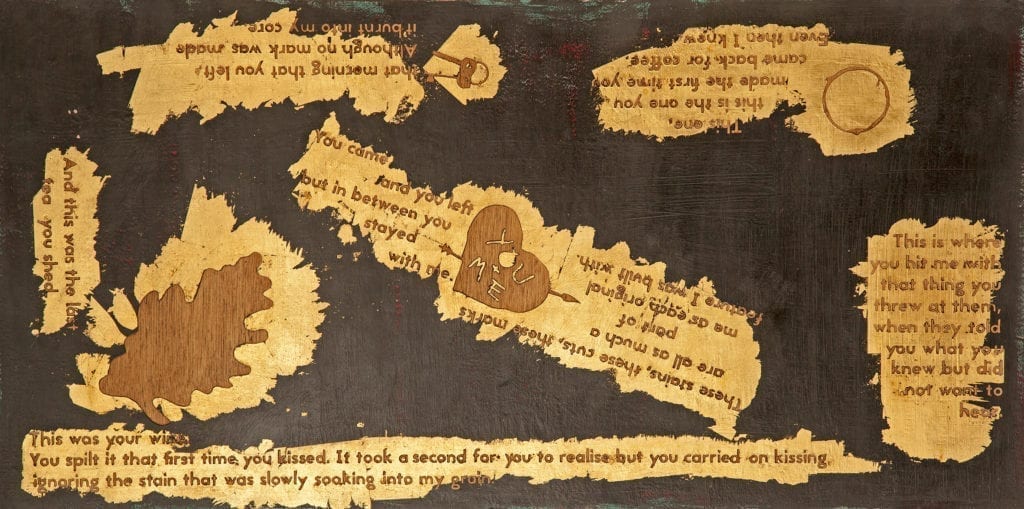 that morning that you left,
Although no mark was made
it burnt into my core.
This one,
this is the one you
made the first time yo
came back for coffee.
Even then I knew
And this was the last
tea you shed.
You came
and you left
but in between you
stayed
with me.
U
ME
These stains, these cuts, these marks
are all as much a
part of
me as each original
feature I was built with.
This is where
you hit me with
that thing you
threw at them,
when they told
you what you
knew but did
not want to
hear.
This was your wine.
You spilt it that first time you kissed. It took a second for you to realise but you carried on kissing,
ignoring the stain that was slowly soaking into my grain.